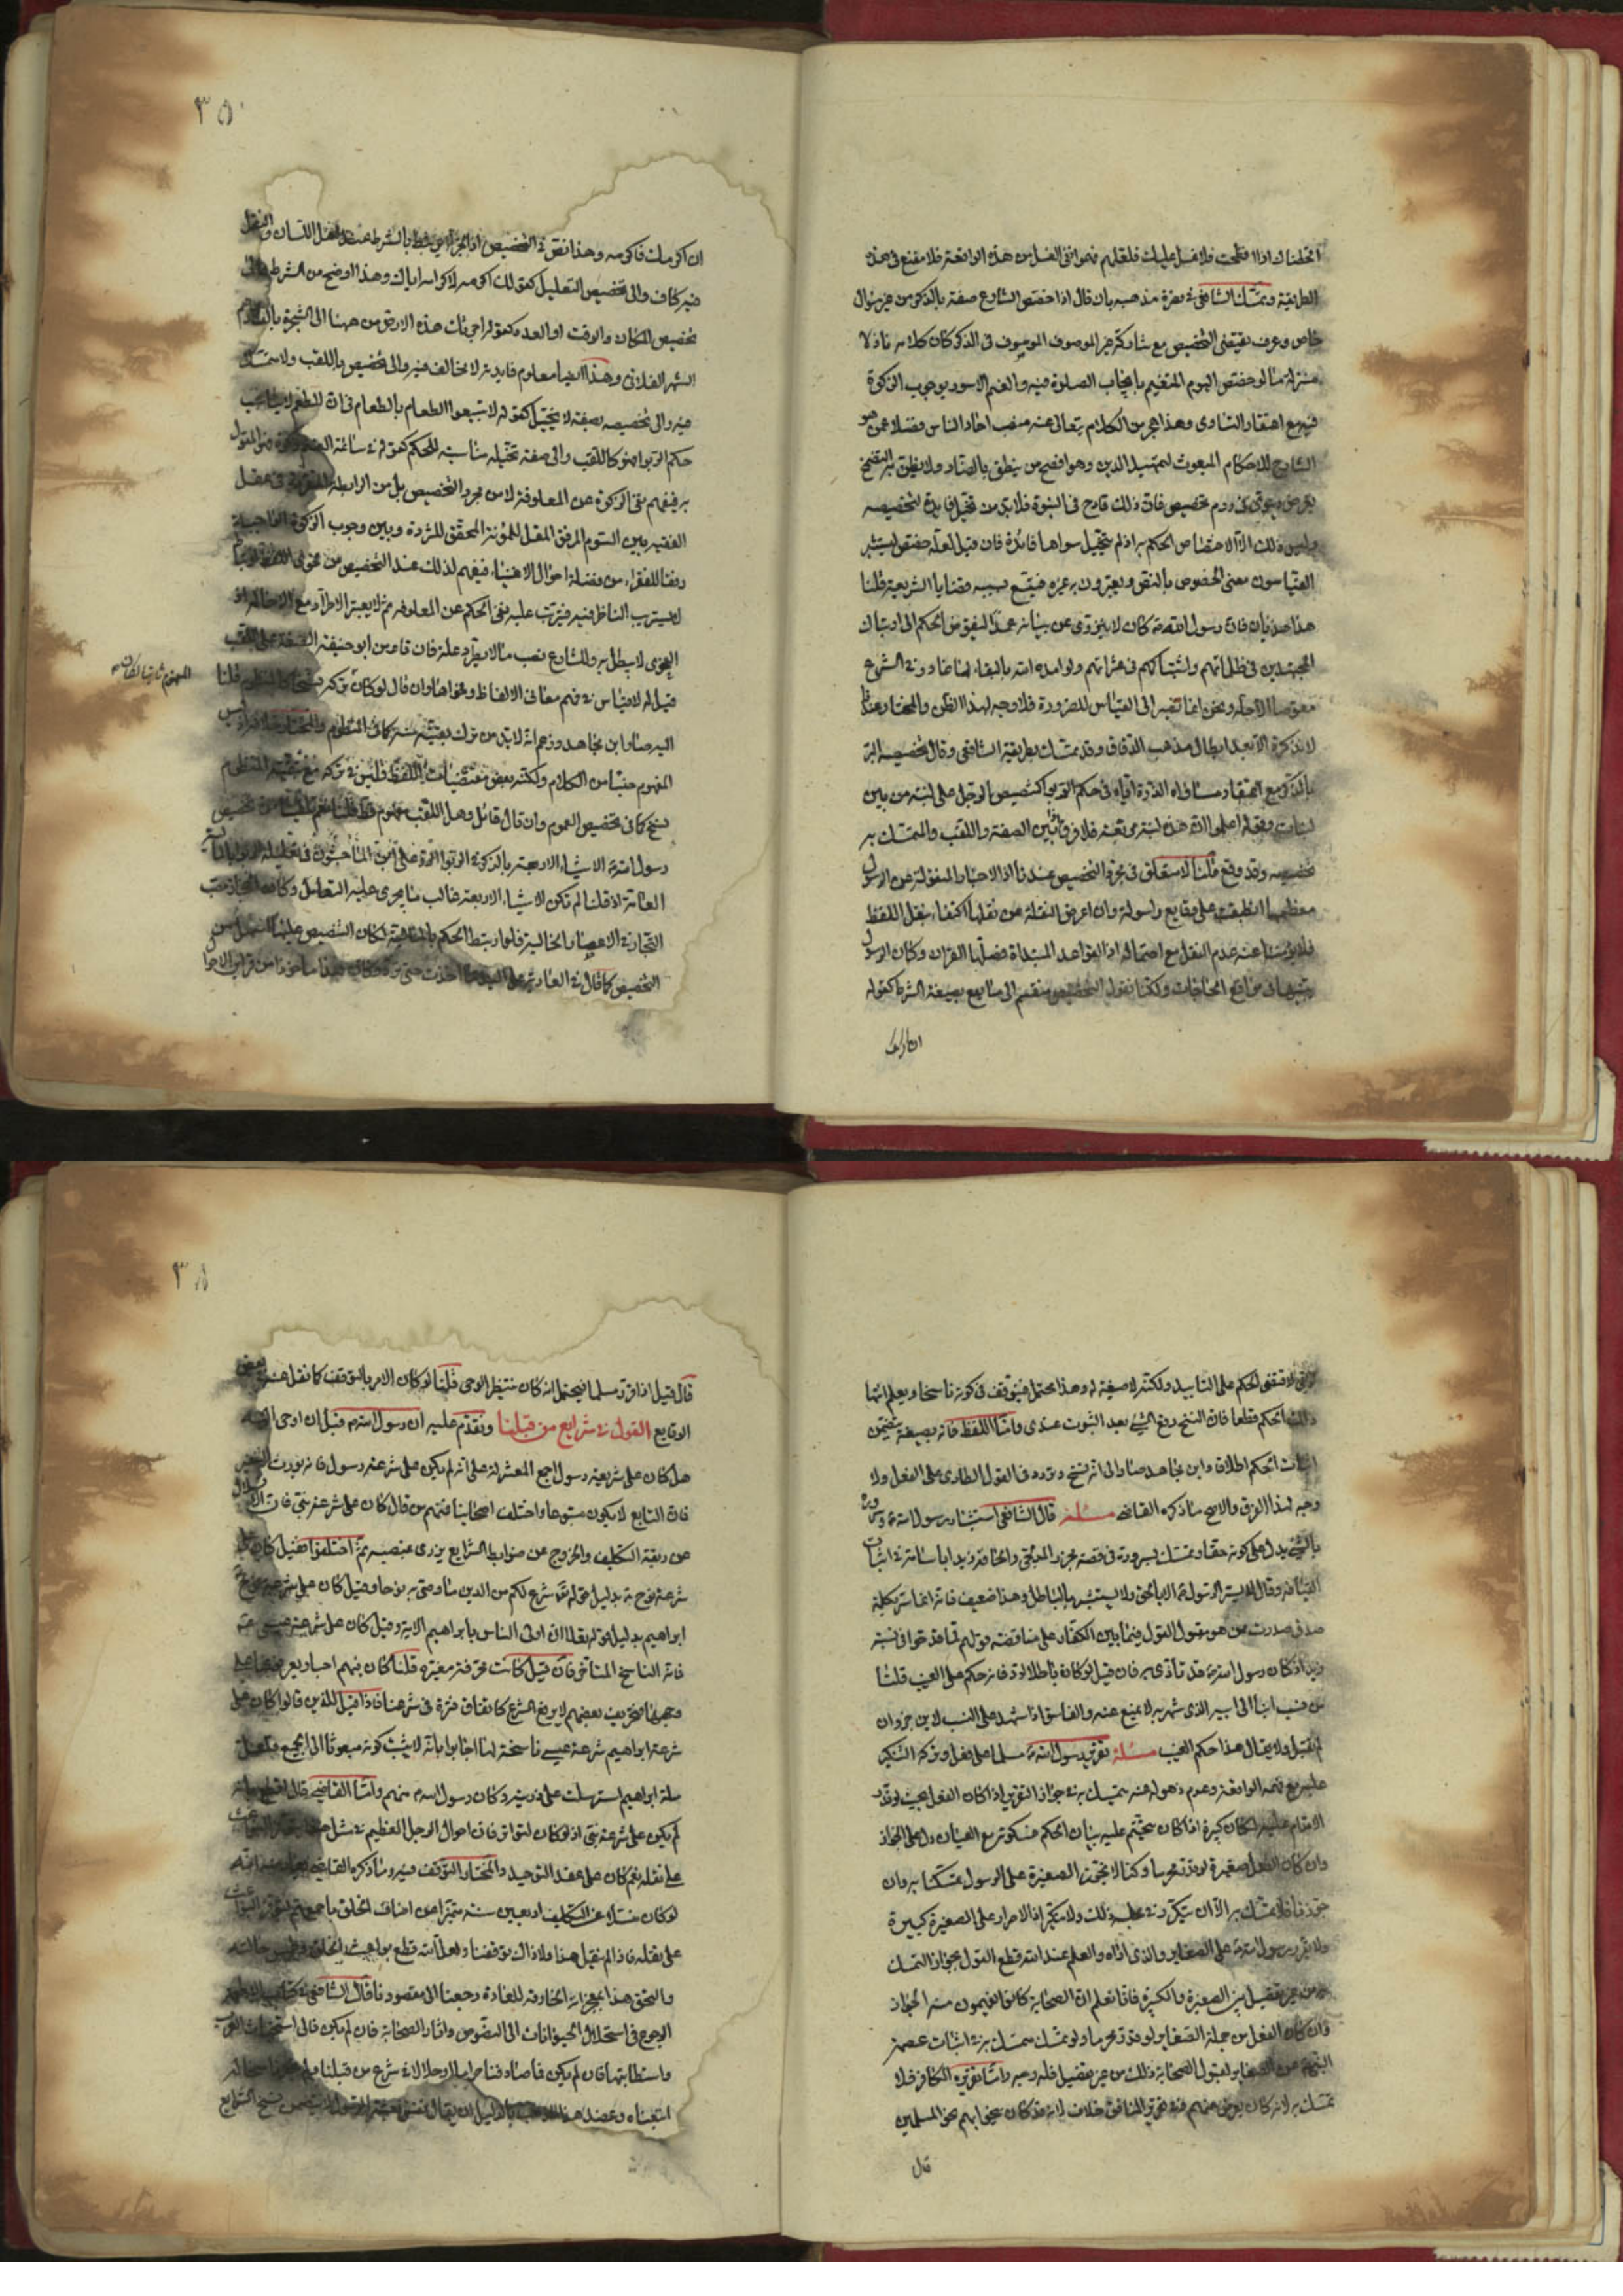 اختلفنا واذا قلت فلا غسل عليك فلعلهم فهموا نفي الغسل من هذه الواقعة فلا مقنع في هذه
الطريقة وتمسك الشافعي في نصرة مذهبه بان قال اذا خصص الشارع صفة بالذكر من غير سؤال
خاص وعرف يقتضي التخصيص مع مشاركة غير الموصوف الموصوف في الذكر كان كلامه نازلا
منزلة ما لو خصص اليوم المتغيم بايجاب الصلوة فيه والغنم الاسود بوجوب الزكوة
فيه مع اعتقاد التساوي وهذا هجر من الكلام يتعالى عنه منصب احاد الناس فضلا عمن هو
الشارع للاحكام المبعوث لتمهيد الدين وهو افصح من ينطق بالضاد ولا يظن به التفصح
فان ذلك قادح في النبوة فلا بد من تخيل فايدة لتخصيصه
وليس ذلك الا اختصاص الحكم به اذ لم يتخيل سواها فائدة فان قيل لعله خصص ليستثير
القياسون معنى الخصوص بالنص ويعتبرون به غيره فيتسع بسببه قضايا الشريعة قلنا
هذا هذيان فان رسول الله كان لا ينزوي عن بيانه عمدا ليفوض الحكم الى ارتباك
المجتهدين في ظلماتهم واشتباكهم في عثراتهم ولو امده الله بالبقاء لما غادر في الشرع
ونحن انما نفتقر الى القياس للضرورة فلا وجه لهذا الظن والمختار عندنا
لا نذكره الا بعد ابطال مذهب الدقاق وقد تمسك بطريقة الشافعي وقال تخصيصه البر
بالذكر مع اعتقاد مساواه الذرة اياه في حكم الربوا كتخصيص الرجل على لبنة من بين
لبنات وقوله اعلموا ان هذه لبنة مربعة فلا فرق بين الصفة واللقب والتمسك به
تخصيصه وقد وقع قلنا لا متعلق في مجرد التخصيص عندنا اذ الاخبار المنقولة عن الرسول
معظمها انطبقت على وقايع واسولة وان اعرض النقلة عن نقلها اكتفاء بنقل اللفظ
فلا يؤيسنا عنه عدم النقل مع احتماله اذ القواعد المبتداة فصلها القران وكان الرسول
في مواقع الحاجات ولكنا نقول التخصيص منقسم الى ما يقع بصيغة الشرط كقوله
ان اكرمك
٣٥
ان اكرمك فاكرمه وهذا نص في التخصيص اذ الجزا مرتبط بالشرط عند اهل اللسان والنقل
فيه كاف والى تخصيص التعليل كقولك اكرمه لاكرامه اياك وهذا اوضح من الشرط
تخصيص المكان والوقت او العدد كقوله احرثت هذه الارض من ههنا الى الشجرة
الشهر الفلاني وهذا ايضا معلوم فايدته لا نخالف فيه والى تخصيص باللقب ولا متمسك
فيه والى تخصيصه بصفة لا يتخيل كقوله لا تبيعوا الطعام بالطعام فان للطعم لا يناسب
حكم الربوا فهو كاللقب والى صفة تخيله مناسبة للحكم كقوله في سائمة الغنم زكوة
به فيفهم نفي الزكوة عن المعلوفة لا من مجرد التخصيص بل من الرابطة في عقل
الفقيه بين السوم المرفق المقل للمؤنة المحقق للثروة وبين وجوب الزكوة
رفقا للفقراء من فضلة اموال الاغنياء فيفهم لذلك عند التخصيص من فحوى اللفظ
لا يستريب الناظر فيه فيترتب عليه نفي الحكم عن المعلوفه ثم لا يعتبر الاطراد مع الاخالة اذ
الفحوى لا يبطل به وللشارع نصب ما لا يطرد علة فان قاومن ابو حنيفة الصفة على اللقب
قيل له لا قياس في فهم معاني الالفاظ وفحواها وان قال لو كان تركه نسخا كالمنظوم قلنا
اليه صار ابن مجاهد وزعم انه لا بد من ترك بقية منه كما في المنظوم والمختار
المفهوم جنبا من الكلام ولكنه بعض مقتضيات اللفظ فليس في تركه مع تبقية المنظوم
نسخ كما في تخصيص العموم وان قال قائل وهل اللقب مفهوم قط قلنا
رسول الله الاشياء الاربعة بالذكر في الربوا
العامة اذ قلنا لم تكن الاشياء الاربعة غالب ما يجري عليه التعامل
التجارة في الاعصار الخالية فلو ارتبط الحكم بالمالية لكان التنصيص عليها اسهل من
التخصيص كما قال في العارية على اليد ما اخذت حتى ترد
المفهوم ثابتا لكان
لا يقتضي الحكم على التابيد ولكنه لا صيغة له وهذا محتمل فيتوقف في كونه ناسخا ويعلم انتها
ذلك الحكم قطعا فان النسخ رفع الشيء بعد الثبوت عندي واما اللفظ فانه بصيغة يتضمن
اثبات الحكم اطلاق وابن مجاهد صار الى انه نسخ وتردد في القول الطاري على الفعل ولا
وجه لهذا الفرق والاصح ما ذكره القاضي مسئلة قال الشافعي استبشار رسول الله وسروره
بالشيء يدل على كونه حقا وتمسك بسروره في قصة مجزز المدلجي والحاقه زيدا باسامة في اثبات
القيافة وقال لا يسر الرسول الا بالحق ولا يستبشر بالباطل وهذا ضعيف فانه انما سر بكلمة
صدق صدرت ممن هو مقبول القول فيما بين الكفار على مناقضة قولهم لما قدحوا في نسبه
زيد اذ كان رسول الله قد تأذى به فان قيل لو كان باطلا لرد فانه حكم على الغيب قلنا
من نسب ابنا الى ابيه الذي شهر به لا يمنع عنه والفاسق اذا شهد على النسب لا ينزجر وان
لم تقبل ولا يقال هذا حكم الغيب مسئلة تقرير رسول الله مسلما على فعل وتركه النكير
عليه مع فهمه الواقعة وعدم ذهوله عنه متمسك به في جواز التقرير اذا كان الفعل بحيث لو قدر
الاقدام عليه لكان كبيرة اذ كان يتحتم عليه بيان الحكم فسكوته مع العيان دل على الجواز
وان كان الفعل صغيرة لو قدر محرما وكنا لا نجوز الصغيرة على الرسول تمسكنا به وان
جوزنا فلا تمسك به الا ان يتكرر في ذلك ولا ينكر اذ الاصرار على الصغيرة كبيرة
ولا يقرر رسول الله على الصغاير والذي اراه والعلم عند الله قطع القول بجواز التمسك
به من غير تفصيل بين الصغيرة والكبيرة فانا نعلم ان الصحابة كانوا يفهمون منه الجواز
فان كان الفعل من جملة الصغاير لو قدر محرما ولو تمسك متمسك به في اثبات عصمة
النبي عن الصغاير لقبول الصحابة ذلك من غير تفصيل فله وجه واما تقريره الكافر فلا
تمسك به لانه كان يعرض عنهم وفي تقرير المنافق خلاف لانه قد كان ينحوا بهم نحو المسلمين
قال
٣٨
قال قيل اذا قرر مسلما فيحتمل انه كان منتظر الوحي قلنا لو كان الامر بالتوقف كما نقل عنه في بعض
الوقايع القول في شرايع من قبلنا ونقدم عليه ان رسول الله قبل ان اوحى اليه
هل كان على شريعة رسول اجمع المعتزلة على انه لم يكن على شرعة رسول فانه يورث التنفير
فان التابع لا يكون متبوعا واختلف اصحابنا فمنهم من قال كان على شرعة نبي فان الانسلال
عن ربقة التكليف والخروج عن ضوابط الشرايع يزري بمنصبه ثم اختلفوا فقيل كان على
شرعة نوح بدليل قوله تعالى شرع لكم من الدين ما وصى به نوحا وقيل كان على شرعة
ابراهيم بدليل قوله تعالى ان اولى الناس بابراهيم الاية وقيل كان على شرعة عيسى
فانه الناسخ المتأخر فان قيل كانت محرفة مغيرة قلنا كان فيهم احبار يعرفونها على
وجهها وتحريف بعضهم لا يرفع الشرع كما نفاق فترة في شرعنا فاذا قيل للذين قالوا كان على
شرعة ابراهيم شرعة عيسى ناسخة لها اجابوا بانه لا يثبت كونه مبعوثا الى الجميع ولعل
ملة ابراهيم استرسلت على ذريته وكان رسول الله منهم واما القاضي قال اقطع بانه
لم يكن على شرعة نبي اذ لو كان لتواتر فان احوال الرجل العظيم في مثل هذا
على نقله نعم كان على عقد التوحيد والمختار التوقف فيه وما ذكره القاضي
لو كان منسلا عن التكليف اربعين سنة متميزا من اصناف الخلق
على نقله فاذا لم ينقل هذا ولا ذاك توقفنا ولعل الله قطع بواعث الخلق
والتحق هذا بمعجزاته الخارقة للعادة رجعنا الى مقصودنا قال الشافعي في كتاب الاطعمة
الرجوع في استحلال الحيوانات الى النصوص واثار الصحابة فان لم يكن فالى استخباث العرب
واستطابتها فان لم يكن فما صادفنا حراما او حلالا في شرع من قبلنا
اتبعناه وعضد هذا المذهب بالدليل ان يقال نفس بعثة الرسول لا يتضمن نسخ الشرايع